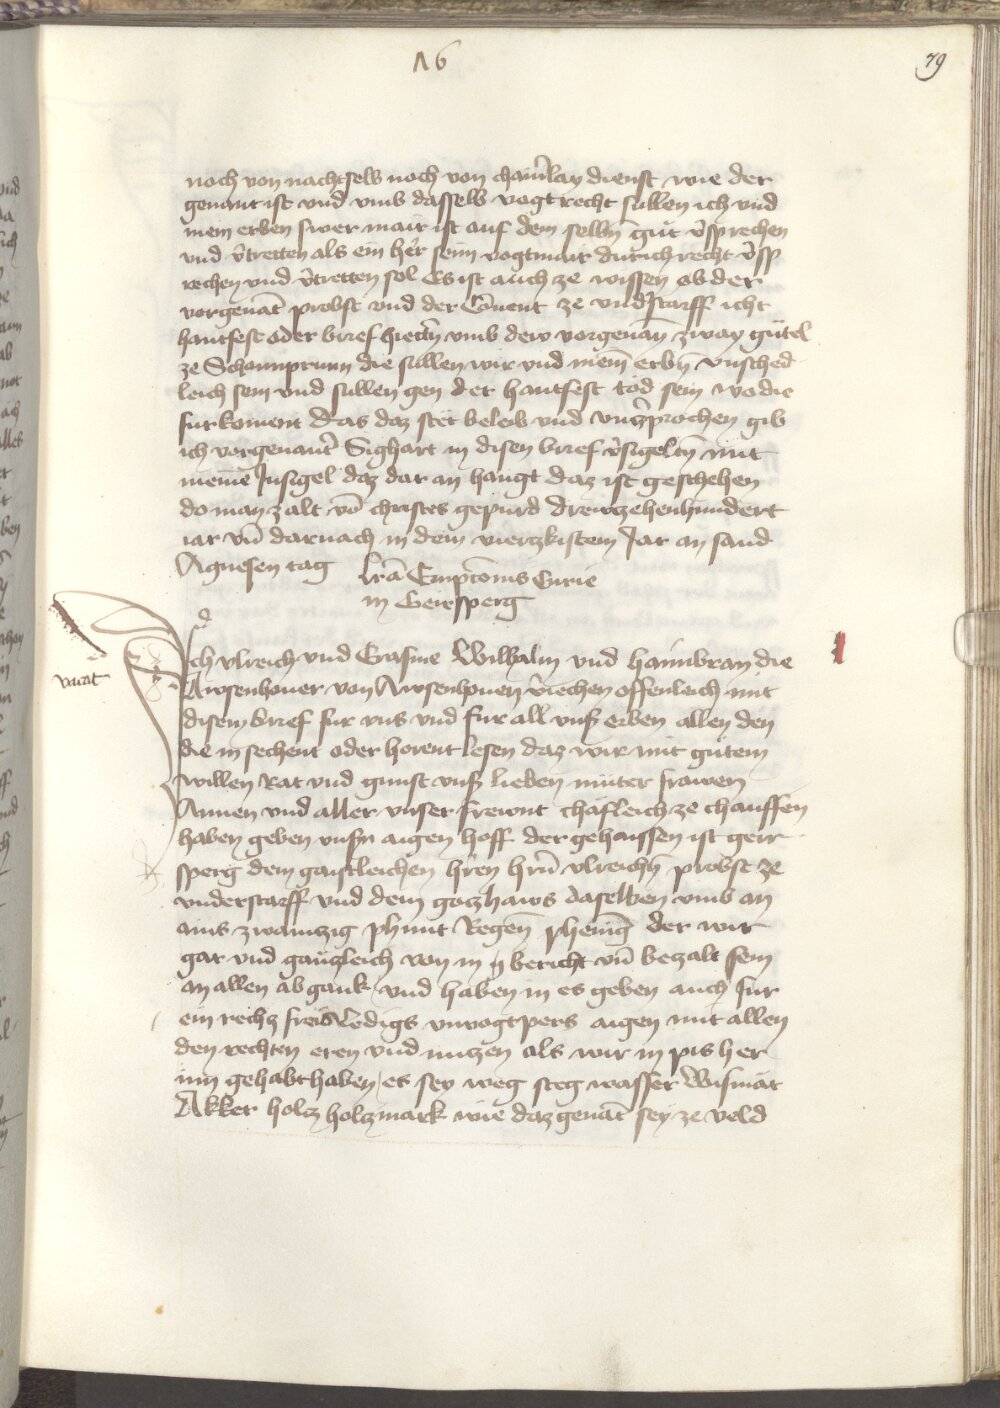 16
79
noch von nachtselb noch von chamˀlay dienst wie der
genant ist vnd vmb dasselb vogtrecht sullen ich vnd
mein erben swer mair ist auf dem selbn̄ gut vˀsprechen
vnd vˀtretten als ein herˀ sein vogtmair durich recht vˀsp
rechen vnd vˀtretten sol Es ist auch ze wissen ob der
vorgenāt probst vnd der Cōuent ze vndˀstarff icht
hantfest oder brief hietn̄ vmb dew vorgenan̄ zway gütel
ze Schonnprunn die sullen wir vnd mein̄ erbn̄ vnsched
leich sein vnd sullen gen der hantfest tod sein wo die
furkoment Das daz stet beleib vnd vnzˀprochen gib
ich vorgenantˀ Sighart in disen brief vˀsigeltn̄ mit
meinē Insigel daz dar an hangt daz ist geschehen
do man zalt vō christes gepurd drewzehenhundert
iar vn̄ darnach in dem viertzkistem Jar an sand
Agnesen tag
lrā Empcōnis Curie
in Geirsperg
vacat
Ich vlreich vnd Erasme Wilhalm vnd haimbran die
Awsenhouer von Awsenhouen vˀiechen offenleich mit
disem brief fur vns vnd fur all vnsˀ erben allen den
die in sechent oder horent lesen daz wir mit gütem
willen Rat vnd gunst vnsˀ lieben müter frawen
Annen vnd aller vnser frewnt chafleich ze chauffen
haben geben vnsˀn aigen hoff der gehaissen ist geir
sperg dem gaistleichen hrˀen hrn̄ vlreichn̄ probst ze
vnderstarff vnd dem gozhaws daselben vmb an
ains zwaintzig phunt Regen̄ phenīg der wir
gar vnd gaͤnzleich von in bericht vn̄ bezalt sein
an allen abgank vnd haben in es geben auch fur
ein rechz freis ledigs vnuogtpers aigen mit allen
den rechten eren vnd nutzen als wir in pis her
inn gehabt haben es sey weg steg wasser Wismat
Akker holtz holtzmark wie daz genāt sey ze veld